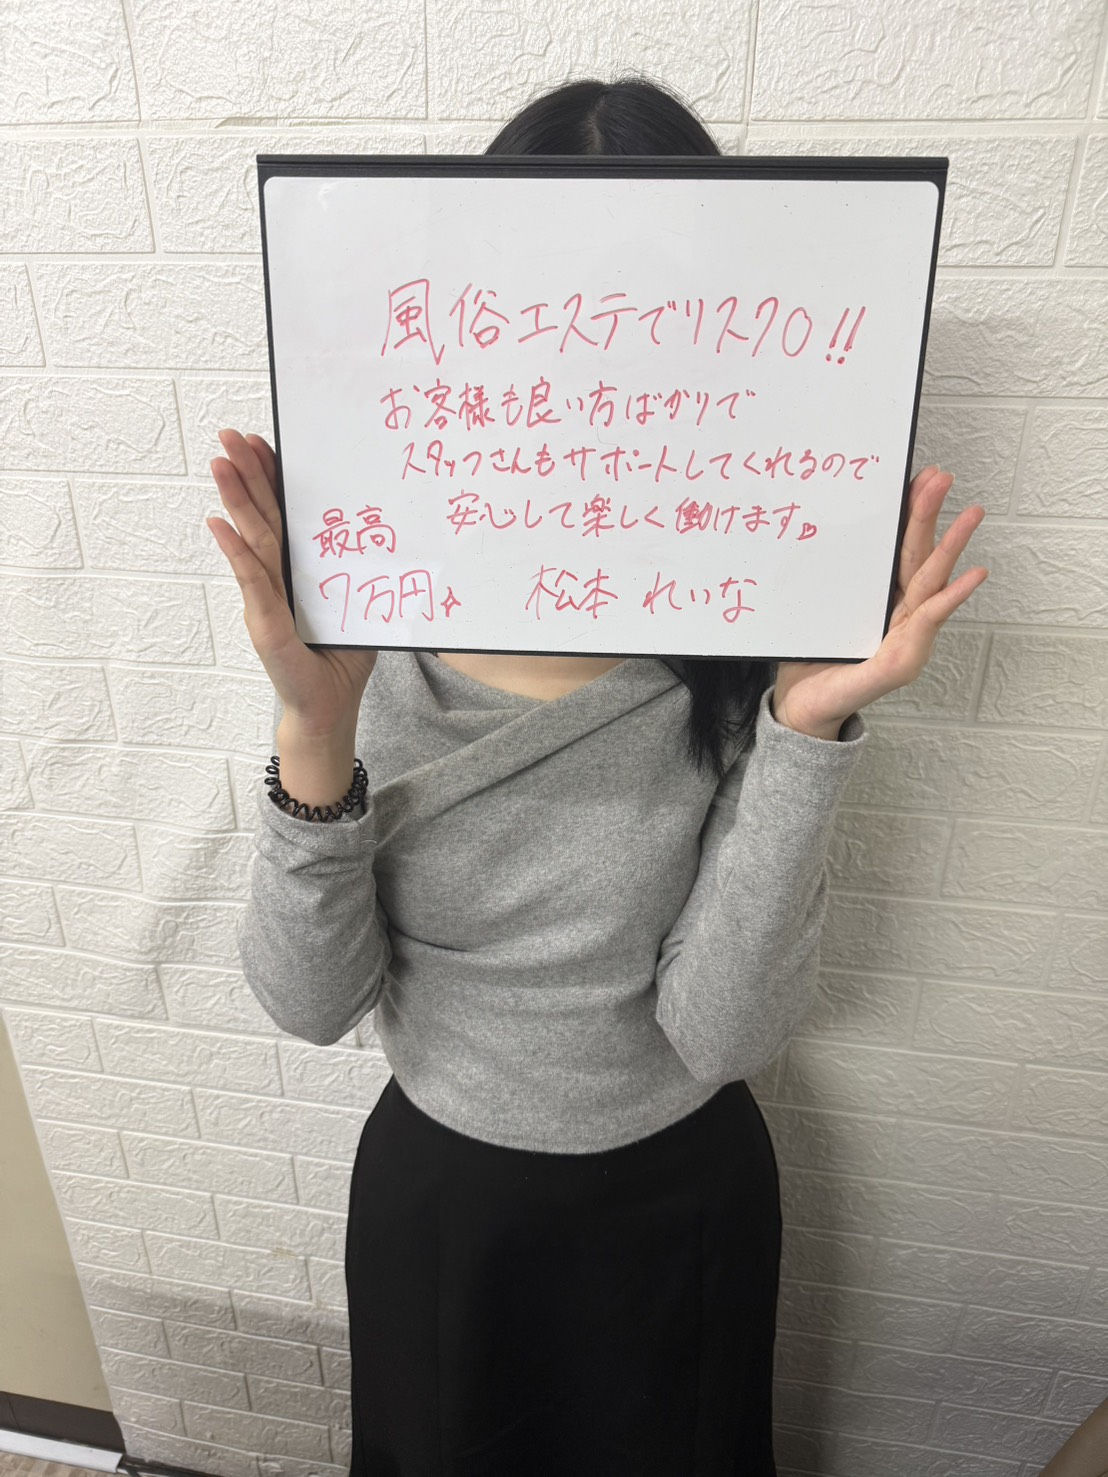 風俗エステでリスク0!!
お客様も良い方ばかりで
スタッフさんもサポートしてくれるので
安心して楽しく働けます♡
最高
7万円☆
松本 れいな